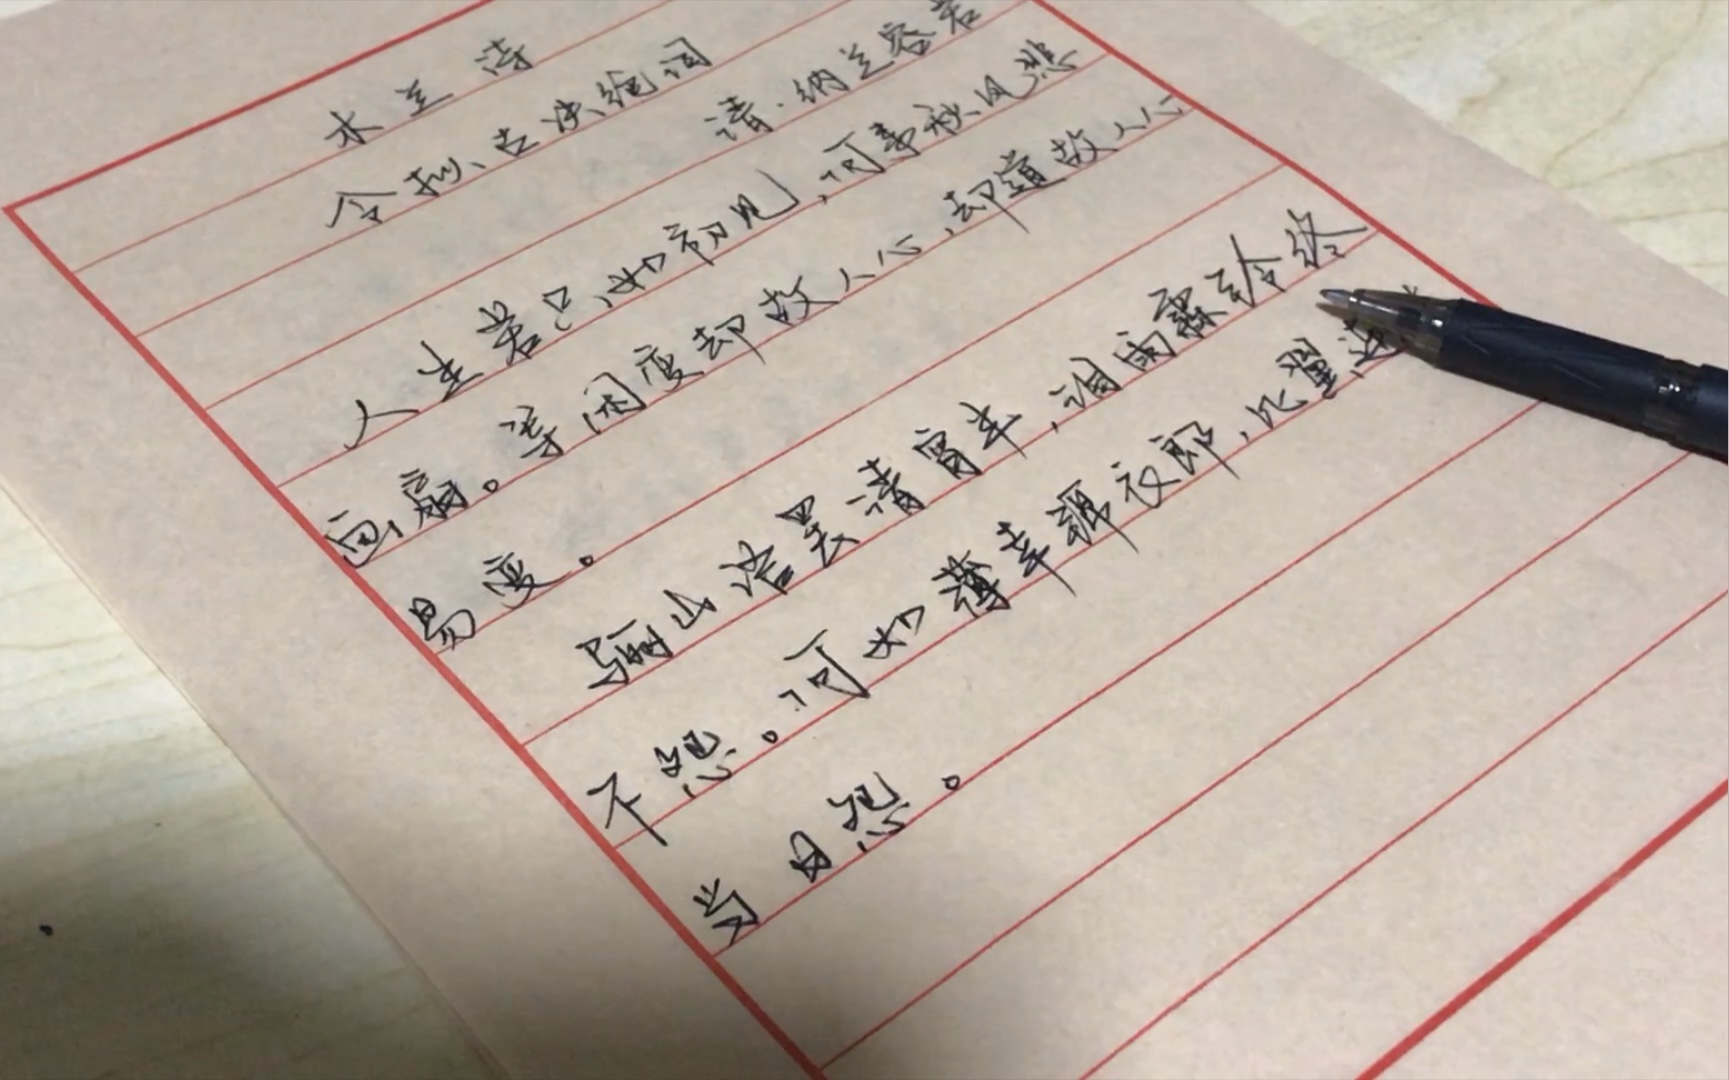 木兰诗
令拟古决绝词
清·纳兰容若
人生若只如初见，何事秋风悲
画扇。等闲变却故人心，却道故人心
易变。
骊山语罢清宵半，泪雨霖铃终
不怨。何如薄幸锦衣郎，比翼连
当日怨。